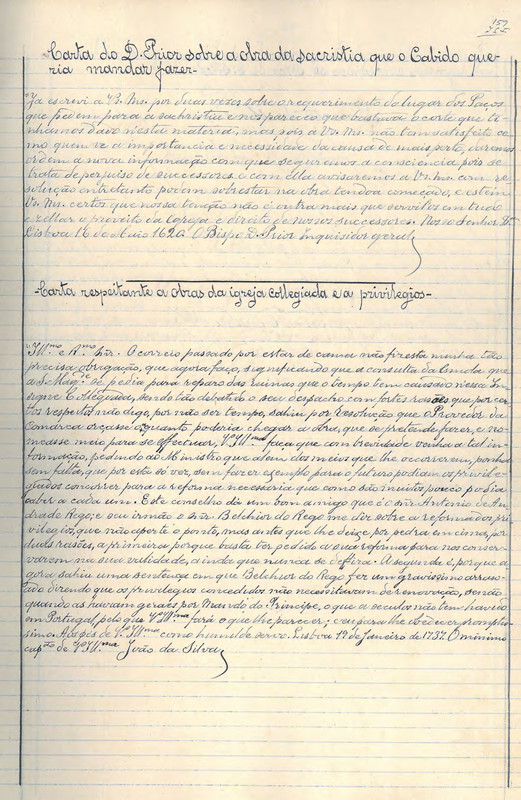 Carta do D. Prior sobre a obra da sacristia que o Cabido que-
ria mandar fazer-
"Ja escrevi a V. Ms. por duas vezes sobre o requerimento do lugar dos Paços
que pedem para a sachristia e nos pareceo que bastava o corte que ti-
nhamos dado nesta materia, mas pois a V. Ms. não tem satisfeito co-
mo quem ve a importancia e necessidade da causa de mais perto, daremos
ordem a nova informação com que seguremos a consciencia, pois se
trata de perjuiso de successores, e com ella avisaremos a V. Ms. com re-
solução entretanto podem sobrestar na obra tendoa começado, e estem
V. Ms. certos que nossa tenção não é outra mais que servilos em tudo
e zellar o proveito da Igreja e direito de nossos successores. Nosso Senhor &
Lisboa 16 de Maio 1620 O Bispo D. Prior Inquisidor geral
-Carta respeitante a obras da igreja collegiada e a privilegios-
"Ill.mo e R.mo Snr. O correio passado por estar de cama não fiz esta minha tão
precisa obrigação, que agora faço, significando que a consulta da esmola que
a S. Mag.e se pedia para reparo das ruinas que o tempo tem causado nessa In-
signe Collegiada, sendo tão debatido o seu despacho com fortes rasões que por cer-
tos respeitos não digo, por não ser tempo, sahiu por resolução que o Provedor da
Comarca orçasse o quanto poderia chegar a obra, que se pretende fazer, e no-
measse meio para se effectuar. V. Ill.ma faça que com brevidade venha a tal in-
formação, pedindo ao Ministro que alem dos meios que lhe occorrerem, ponha
sem falta, que por esta só vez, sem fazer exemplo para o futuro podiam os privile-
giados concorrer para a reforma necessaria que como são muitos pouco podia
caber a cada um. Este conselho de um bom amigo que é o snr. Antonio de An-
drade Rego; e seu irmão o snr. Belchior do Rego me diz sobre a reforma dos pri-
vilegios, que não aperte o ponto, mas antes que lhe deixe por pedra em cima, por
duas rasões, a primeira porque basta ter pedido a sua reforma para nos conser-
varem na sua validade, ainda que nunca se defira. A segunda é, porque a-
gora sahiu uma sentença em que Belchior do Rego fez um gravissimo arrasoa-
do dizendo que os privilegios concedidos não necessitavam de renovação, senão
quando as haviam geraes por Mando do Principe, o que a seculos não tem havido
em Portugal, pelo que V. Ill.ma fará o que lhe parecer; eu para lhe obedecer promptis-
simo. Aos pés de V. Ill.ma como humilde servo. Lisboa 19 de Janeiro de 1737. O minimo
cap.ao de V. Ill.ma João da Silva